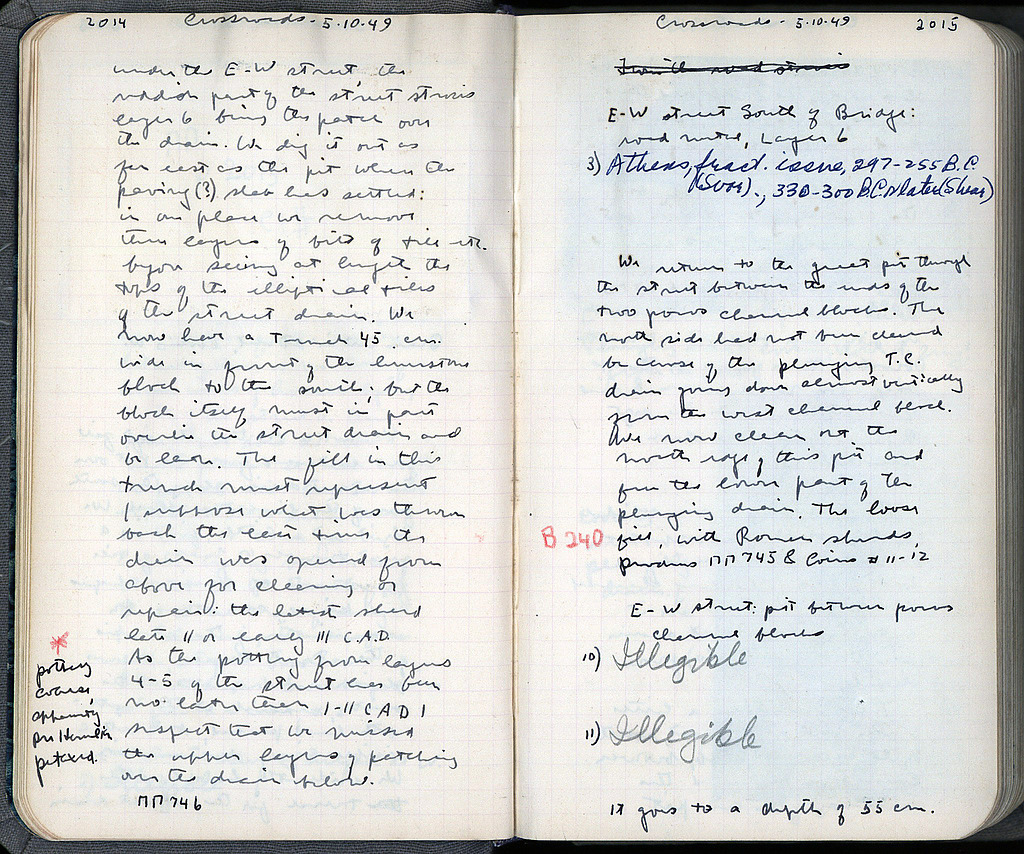 2014 Crossroads - 5.10.49
under the E-W street, the
reddish part of the street strosis
layer 6 being the patch over
the drain. We dig it out as
far east as the pit where the
paving (?) slab has settled:
in one place we remove
three layers of bits of tile etc.
before seeing at length the
tops of the elliptical tiles
of the street drain. We
now have a trench 45 cm.
wide in front of the limestone
block to the south; but the
block itself must in part
overlie the street drain and
be later. The fill in this
trench must represent
I suppose what was thrown
back the last time the
drain was opened from
above for cleaning or
repair: the latest sherd
late II or early III C.A.D.
As the pottery from layers
4-5 of the street has been
no later than I-II C A D I
suspect that we missed
the upper layers of patching
over the drain
ΠΠ 746
*
pottery
coarse,
apparently
2015 Crossroads - 5.10.49
From the road strosis
E-W street South of Bridge:
road metal, Layer 6
3) Athens, fract. issue, 297-255 B.C.
(Svor)., 330-300 B.C. or later (Shear)
We return to the great pit through
the street between the ends of the
two poros channel blocks. The
north side had not been cleared
because of the plunging T.C.
drain going down almost vertically
from the west channel block.
We now clean out the
north edge of this pit and
find the lower part of the
plunging drain. The loose
fill, with Roman sherds,
B 240
produces ΠΠ 745 & Coins # 11-12
E-W street: pit between poros
channel blocks
10) Illegible
11) Illegible
It goes to a depth of 55 cm.